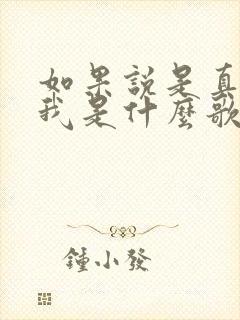 如果說是真
我是什麼歌
鍾小發